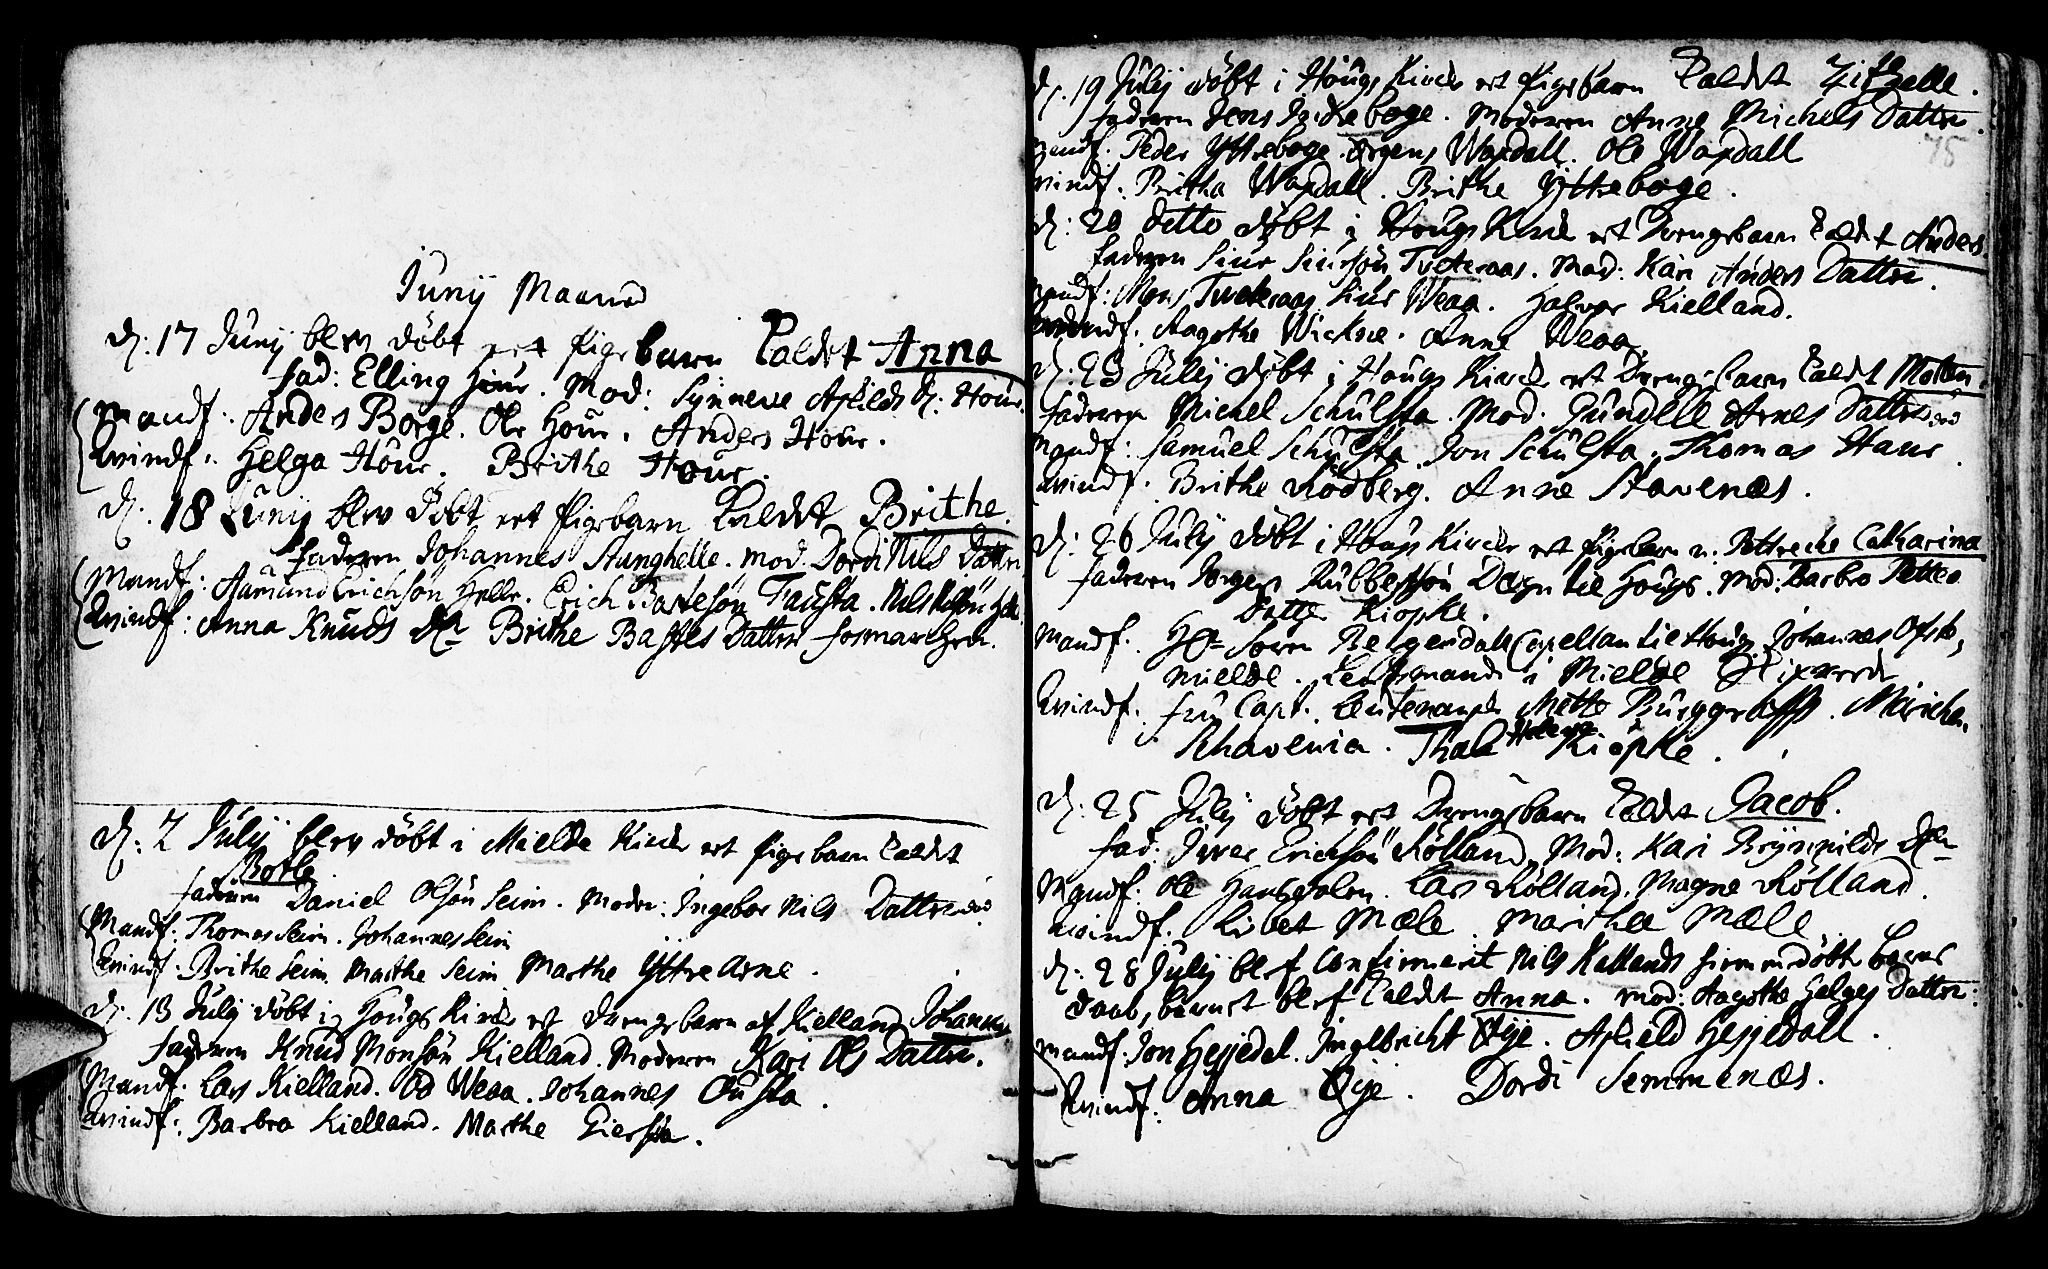 Junij Maaned
d: 17 Junij blev döbt et pigebarn kaldet Anna
fad: Elling Hour. Mod: Synneve Askilds D: Hour.
Mandf: Anders Borge. Ole Hour. Anders Hour.
Kvindf: Helga Hour. Brithe Hour.
d. 18 Junij blev döbt et pigebarn kaldet Brithe.
faderen Johannes Stunghelle. mod. Dordi Nils Datter
Mandf: Aamund Erichsön Helle. Erich Baste sön Fausta. Nils Nilsön Helle
Kvindf: Anna Knuds Dr Brithe Bastes Datter
d: 2 Julij blev döbt i Mielde Kircke et pigebarn kaldet
Botle
faderen Daniel Olsön Seim. Moder: Ingebor Nils Datter
Mandf: Thomas Seim. Johannes Seim
Kvindf: Brithe Seim. Marthe Seim. Marthe Yttre Arne.
d. 13 Julij döbt i Hougs Kircke et drengebarn af Kielland Johannes
faderen Knud Monsön Kielland. Moderen Kari Ols Datter.
Mandf. Lars Kielland. Od Weaa. Johannes Ousta.
Kvindf: Barbro Kielland. Marthe
d. 19 Julij döbt i Hougs Kircke et pigebarn kaldet Zitzelle.
faderen Jens Indreboge. Moderen Anne Michels Datter.
mandf. Peder Yttreboge. Örgens Waxdall. Ole Waxdall
75
kvindf: Britha Waxdall. Brithe Yttreboge.
d: 20 ditto döbt i Hougs Kircke et Drengebarn kaldet Anders
faderen Siur Siursön Tveteraas. Mod: Kari Anders Datter.
mandf: Mons Tveteraas Siur Weaa. Halvor Kielland.
kvindf. Aagothe Wickne. Anne Weaa.
d: 23 Julij döbt i Hougs Kircke et Drengebarn kaldt
faderen Michel Schulsta. Mod. Gundelle Arnes Datter
Mandf: Samuel Schulsta. Jon Schulsta. Thomas Haus.
kvindf. Brithe Rödberg. Anne Stavenæs.
d: 26 Julij döbt i Hougs Kircke et pigebarn n: Pettreche Catharina
faderen Jörgen Rubbertsön Degn til Hougs. Mod: Barbro Petter
Datter Kiöpke.
Mandf. Hr Soren Capellan til Houg. Johannes
Mielde. Lensmand i Mielde
Kvindf. fru Capt. Leutenant Mette Burggraff. Mariche
Schavenia. Thale Helena Kiöpke.
d: 25 Julij döbt et Drengebarn kaldet Jacob.
fad: Iver Erichsön Rölland. Mod: Kari Brynnilds Dr
Mandf: Ole Lars Rölland. Magne Rölland.
kvindf. Lisbet Mæle. Marthe Mæle
d: 28 Julij blef Confirmerit Nils Kallands hiemmedöbte barns
Daab, barnet blef kaldet Anna. mod: Aagothe Helges Datter:
mandf: Jon Hesjedal. Ingelbricht Øye. Askield Hesjedall.
Kvindf: Anna Øye. Dordi Semmenæs.